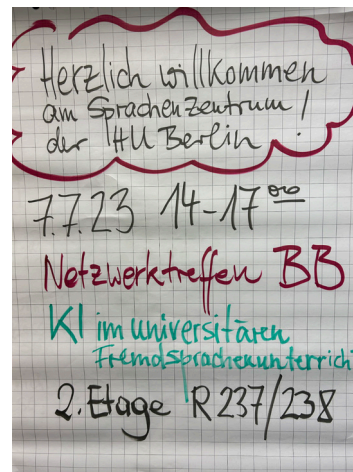 Herzlich willkommen
am Sprachenzentrum!
der HU Berlin
7.7.23 14-17ººº
Netzwerktreffen BB
KI im universitären
Fremdsprachenunterricht
2. Etage R 237/238